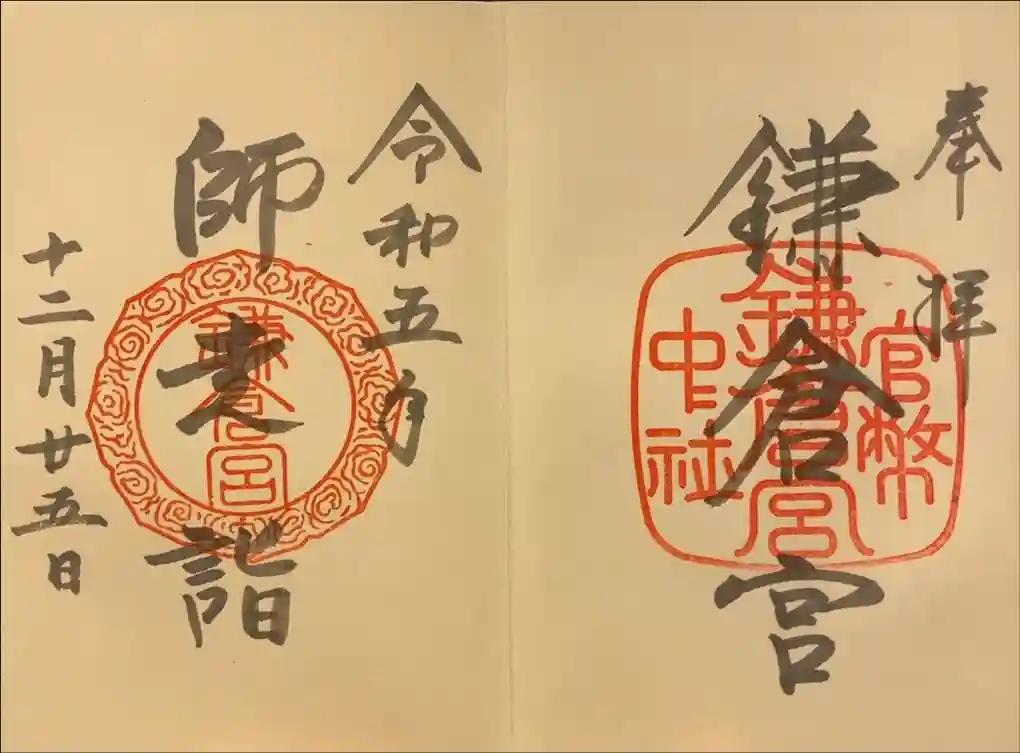 奉拝
鎌倉宮
官幣
鎌倉宮
中社
令和五年
師走詣
鎌倉宮
十二月廿五日